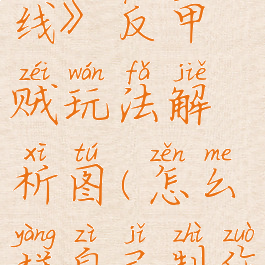 线》反甲
zéi wán fǎ jiě
贼玩法解
xī tú zěn me
析图(怎么
yàng zì jǐ zhì zuò
样自己制作